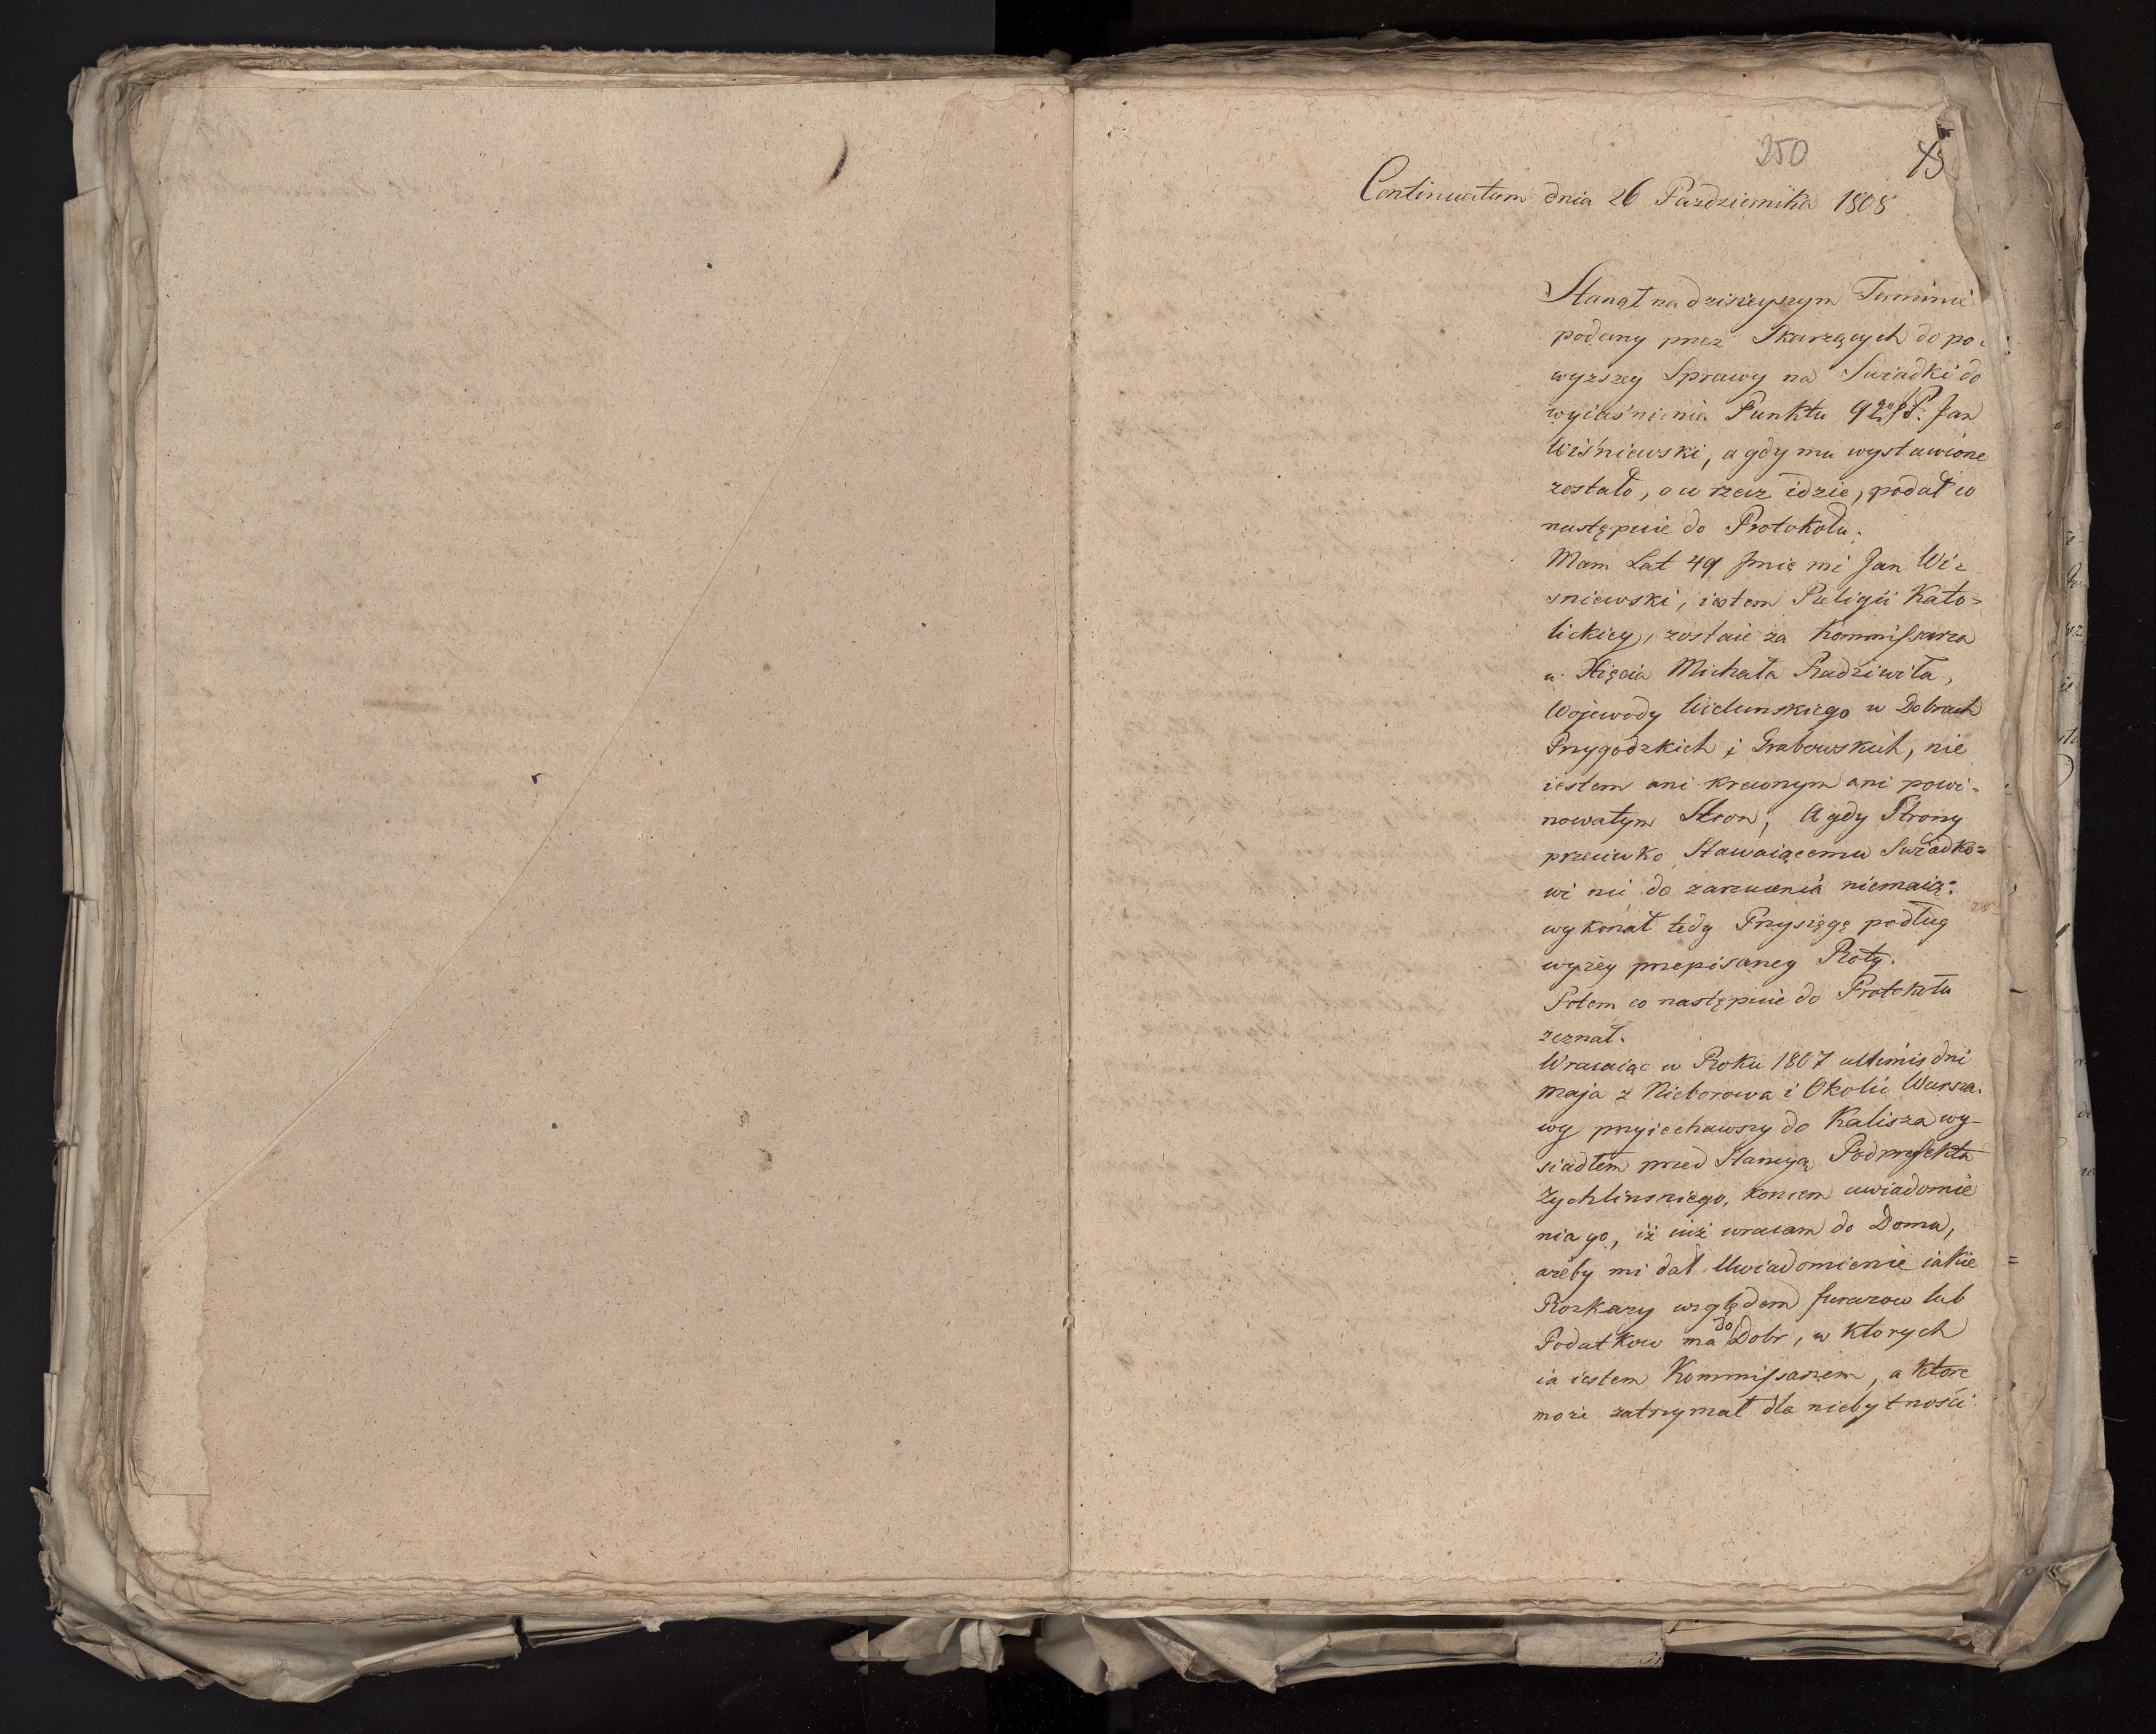 250
Continuatum dnia 26 Pazdziernika 1808
Stanął na dzisieyszym Terminie
podany przez Skarzących do po=
wyzszey Sprawy na Swiadki do
wyiaśnienia Punktu 9 Jan
Wiśniewski, a gdy mu wystawione
zostało, o co rzecz idzie, podał co
następuie do Protokołu.
Mam Lat 49 Jmię mi Jan Wi=
sniewski, iestem Religii Kato=
lickiey, zostaię za Kommissarza
u Xięcia Michała Radziwiła,
Wojewody Wielunskiego w Dobrach
Przygodzkich i Grabowskich, nie
iestem ani krewnym ani powi=
nowatym Stron, A gdy Strony
przeciwko Stawaiącemu Swiadko=
wi nic do zarzucenia niemaią:
wykonał tedy Przysięgę podług
wyzey przepisaney Roty.
Potem co następuie do Protokołu
zeznał.
Wracaiąc w Roku 1807 ultimis dni
Maja z Nieborowa i Okolic Warsza=
wy przyiechawszy do Kalisza wy=
siadłem przed Stancyą Podprefekta
Zychlinskiego, koncem uwiadomie
nia go, iż iuż wracam do Domu,
ażeby mi dał Uwiadomienie iakie
Rozkazy względem furazow lub
Podatkow ma do Dobr, w ktorych
ia iestem Kommissarzem, a ktore
może zatrzymał dla niebytności